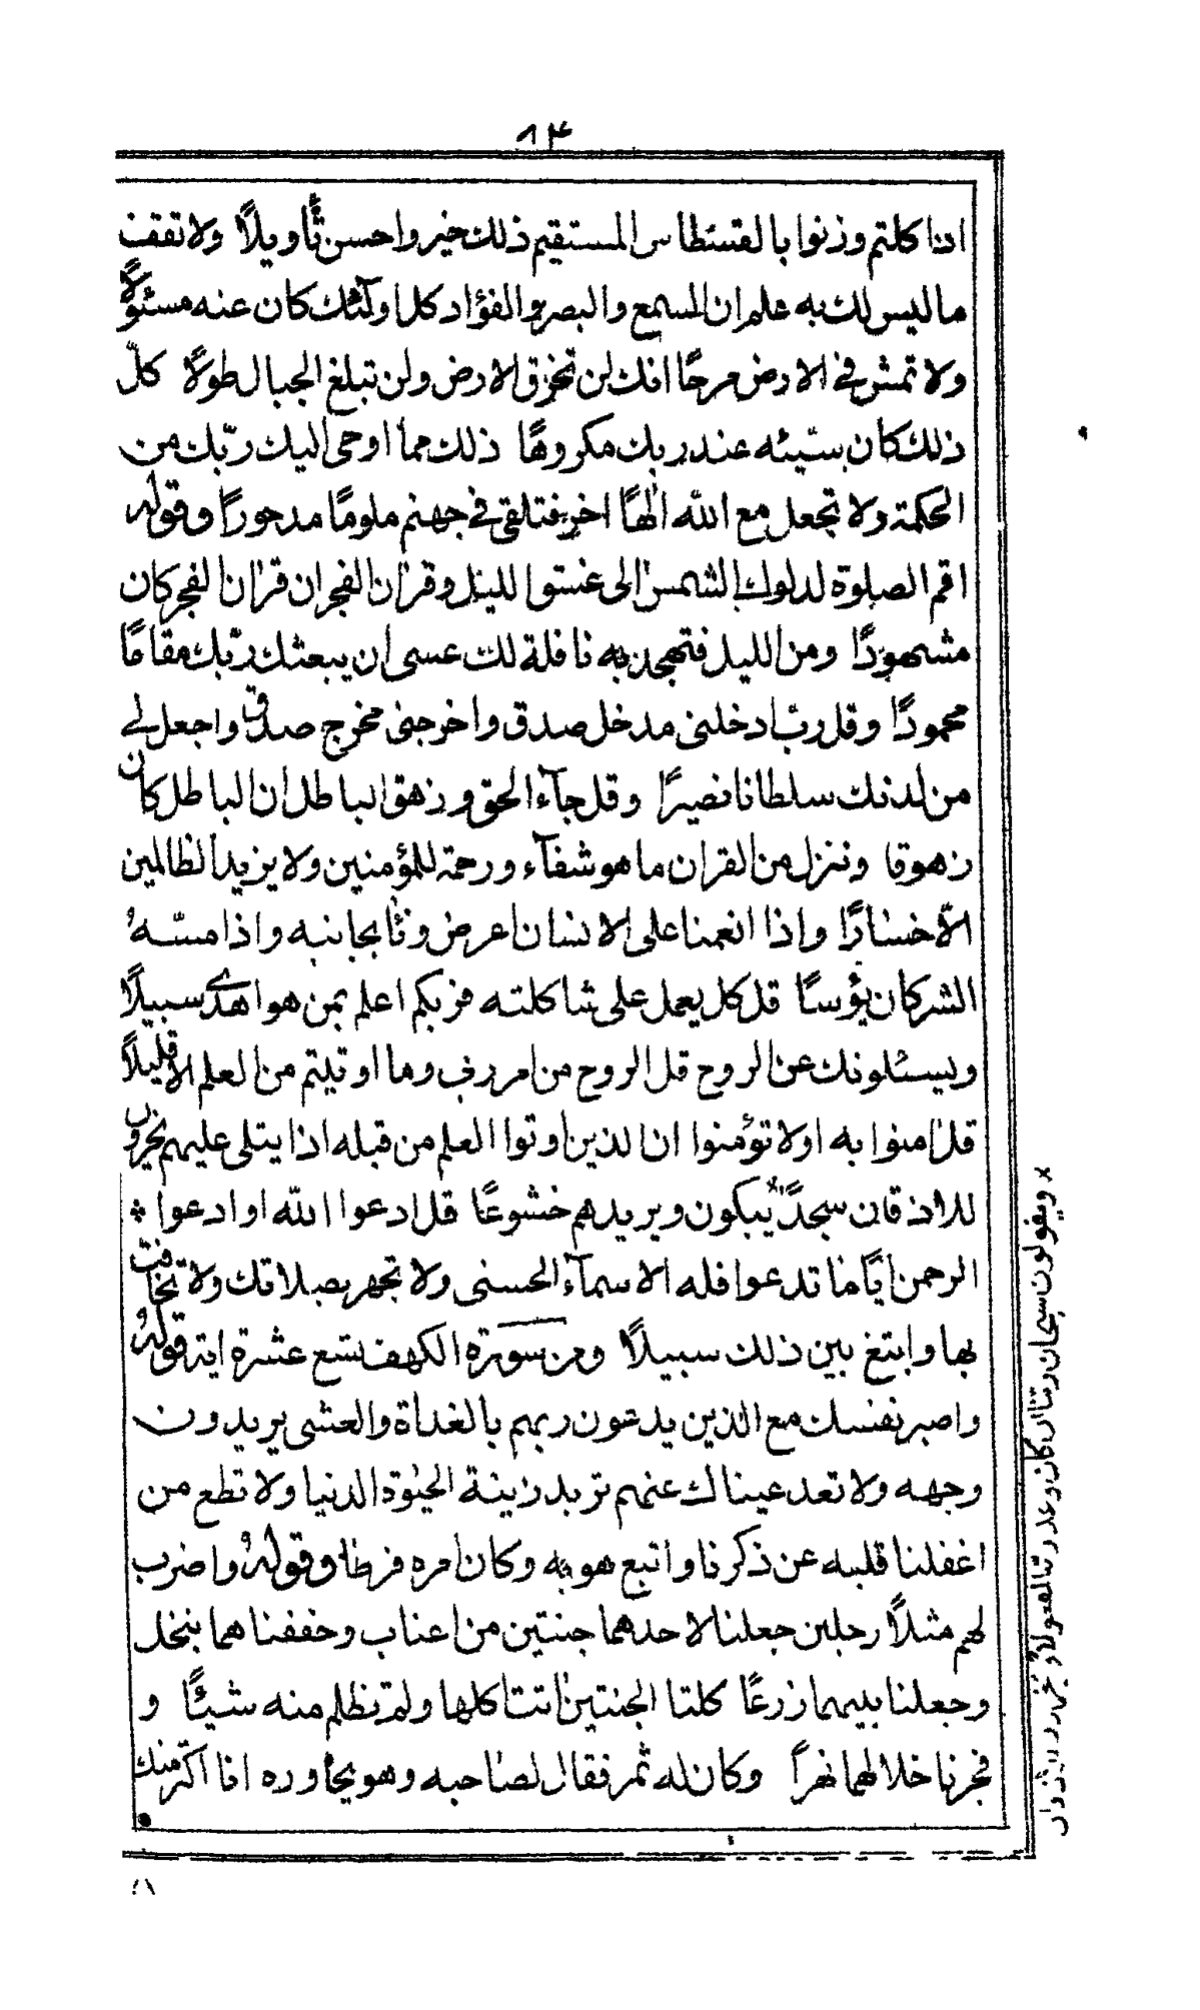 ١٣
اذا كلتم وزنوا بالقسطاس المستقيم ذلك خير واحسن تأويلاً ولا تقف
ما ليس لك به علم ان السمع والبصر والفؤاد كل اولئك كان عنه مسئولاً
ولا تمش في الارض مرحًا انك لن تخرق الارض ولن تبلغ الجبال طولاً كلّ
ذلك كان سيّئه عند ربك مكروهًا ذلك مما اوحى اليك ربّك من
الحكمة ولا تجعل مع الله الٰهًا اخر فتلقى في جهنم ملومًا مدحورًا وقوله
اقم الصلوة لدلوك الشمس الى غسق الليل وقران الفجر ان قران الفجر كان
مشهودًا ومن الليل فتهجد به نافلة لك عسى ان يبعثك ربّك مقامًا
محمودًا وقل ربّ ادخلنى مدخل صدق واخرجنى مخرج صدق واجعل لي
من لدنك سلطانا نصيرًا وقل جآء الحق وزهق الباطل ان الباطل كان
زهوقا وننزل من القران ما هو شفآء ورحمة للمؤمنين ولا يزيد الظالمين
الاّ خسارًا واذا انعمنا على الانسان اعرض ونئا بجانبه واذا مسّه
الشر كان يؤسًا قل كل يعمل على شاكلته فربكم اعلم بمن هو اهدى سبيلاً
ويسئلونك عن الروح قل الروح من امر ربى وما اوتيتم من العلم الا قليلاً
قل امنوا به اولا تؤمنوا ان الذين اوتوا العلم من قبله اذا يتلى عليهم يخرون
للاذقان سجدًا يبكون ويزيدهم خشوعًا قل ادعوا الله او ادعوا *
الرحمن ايًّا ما تدعوا فله الاسمآء الحسنى ولا تجهر بصلاتك ولا تخافت
بها وابتغ بين ذلك سبيلاً ومن سورة الكهف تسع عشرة اية قوله
واصبر نفسك مع الذين يدعون ربهم بالغداة والعشى يريدون
وجهه ولا تعد عيناك عنهم تريد زينة الحيٰوة الدنيا ولا تطع من
اغفلنا قلبه عن ذكرنا واتبع هويه وكان امره فرطا وقوله واضرب
لهم مثلاً رجلين جعلنا لاحدهما جنتين من اعناب وحففناهما بنخل
وجعلنا بينهما زرعًا كلتا الجنتين اتت اكلها ولم تظلم منه شيئًا و
فجرنا خلالهما نهرًا وكان له ثمر فقال لصاحبه وهو يحاوره انا اكثر منك
ويقولون سبحان ربنا ان كان وعد ربنا لمفعولاً